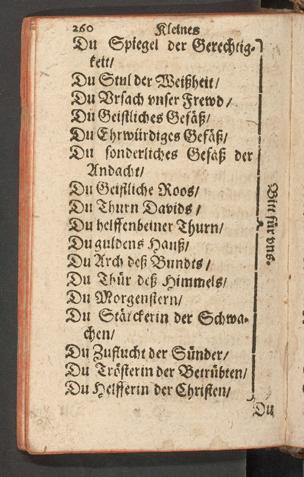 260 Kleines
Du Spiegel der Gerechtig-
keit/
Du Stul der Weißheit/
Du Vrsach vnser Frewd/
Du Geistliches Gefäß/
Du Ehrwürdiges Gefäß/
Du sonderliches Gefäß der
Andacht/
Du Geistliche Roos/
Du Thurn Davids/
Du helffenbeiner Thurn/
Du guldens Hauß/
Du Arch deß Bundts/
Du Thür deß Himmels/
Du Morgenstern/
Du Stärckerin der Schwa-
chen/
Du Zuflucht der Sünder/
Du Trösterin der Betrübten/
Du Helfferin der Christen/
Bitt für vns.
Du